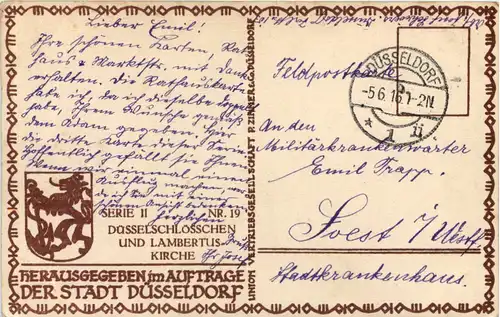 Lieber Emil!
Ihre schönen Karten, Rat-
haus & Marktstr. mit Dank
erhalten. Die Rathauskarte
habe ich, da ich dieselbe doppelt
habe, Ihrem Wunsche gemäß
dem Adam gegeben. Hier
die dritte Karte dieser Serie.
Hoffentlich gefällt sie Ihnen
Wenn wir einmal einen
Ausflug machen,
herzlichen
SERIE II NR. 19
DÜSSELSCHLÖSSCHEN
UND LAMBERTUS-
KIRCHE
HERAUSGEGEBEN im AUFTRAGE
DER STADT DÜSSELDORF
UNION VERTRIEBSGESELLSCHAFT P. ZINNER & Co. DÜSSELDORF
DÜSSELDORF
-5.6.16.1-2N
* 1 ü
Feldpostkarte
An den
Militärkrankenwärter
Emil Trapp.
Soest i/Westf.
Stadtkrankenhaus.